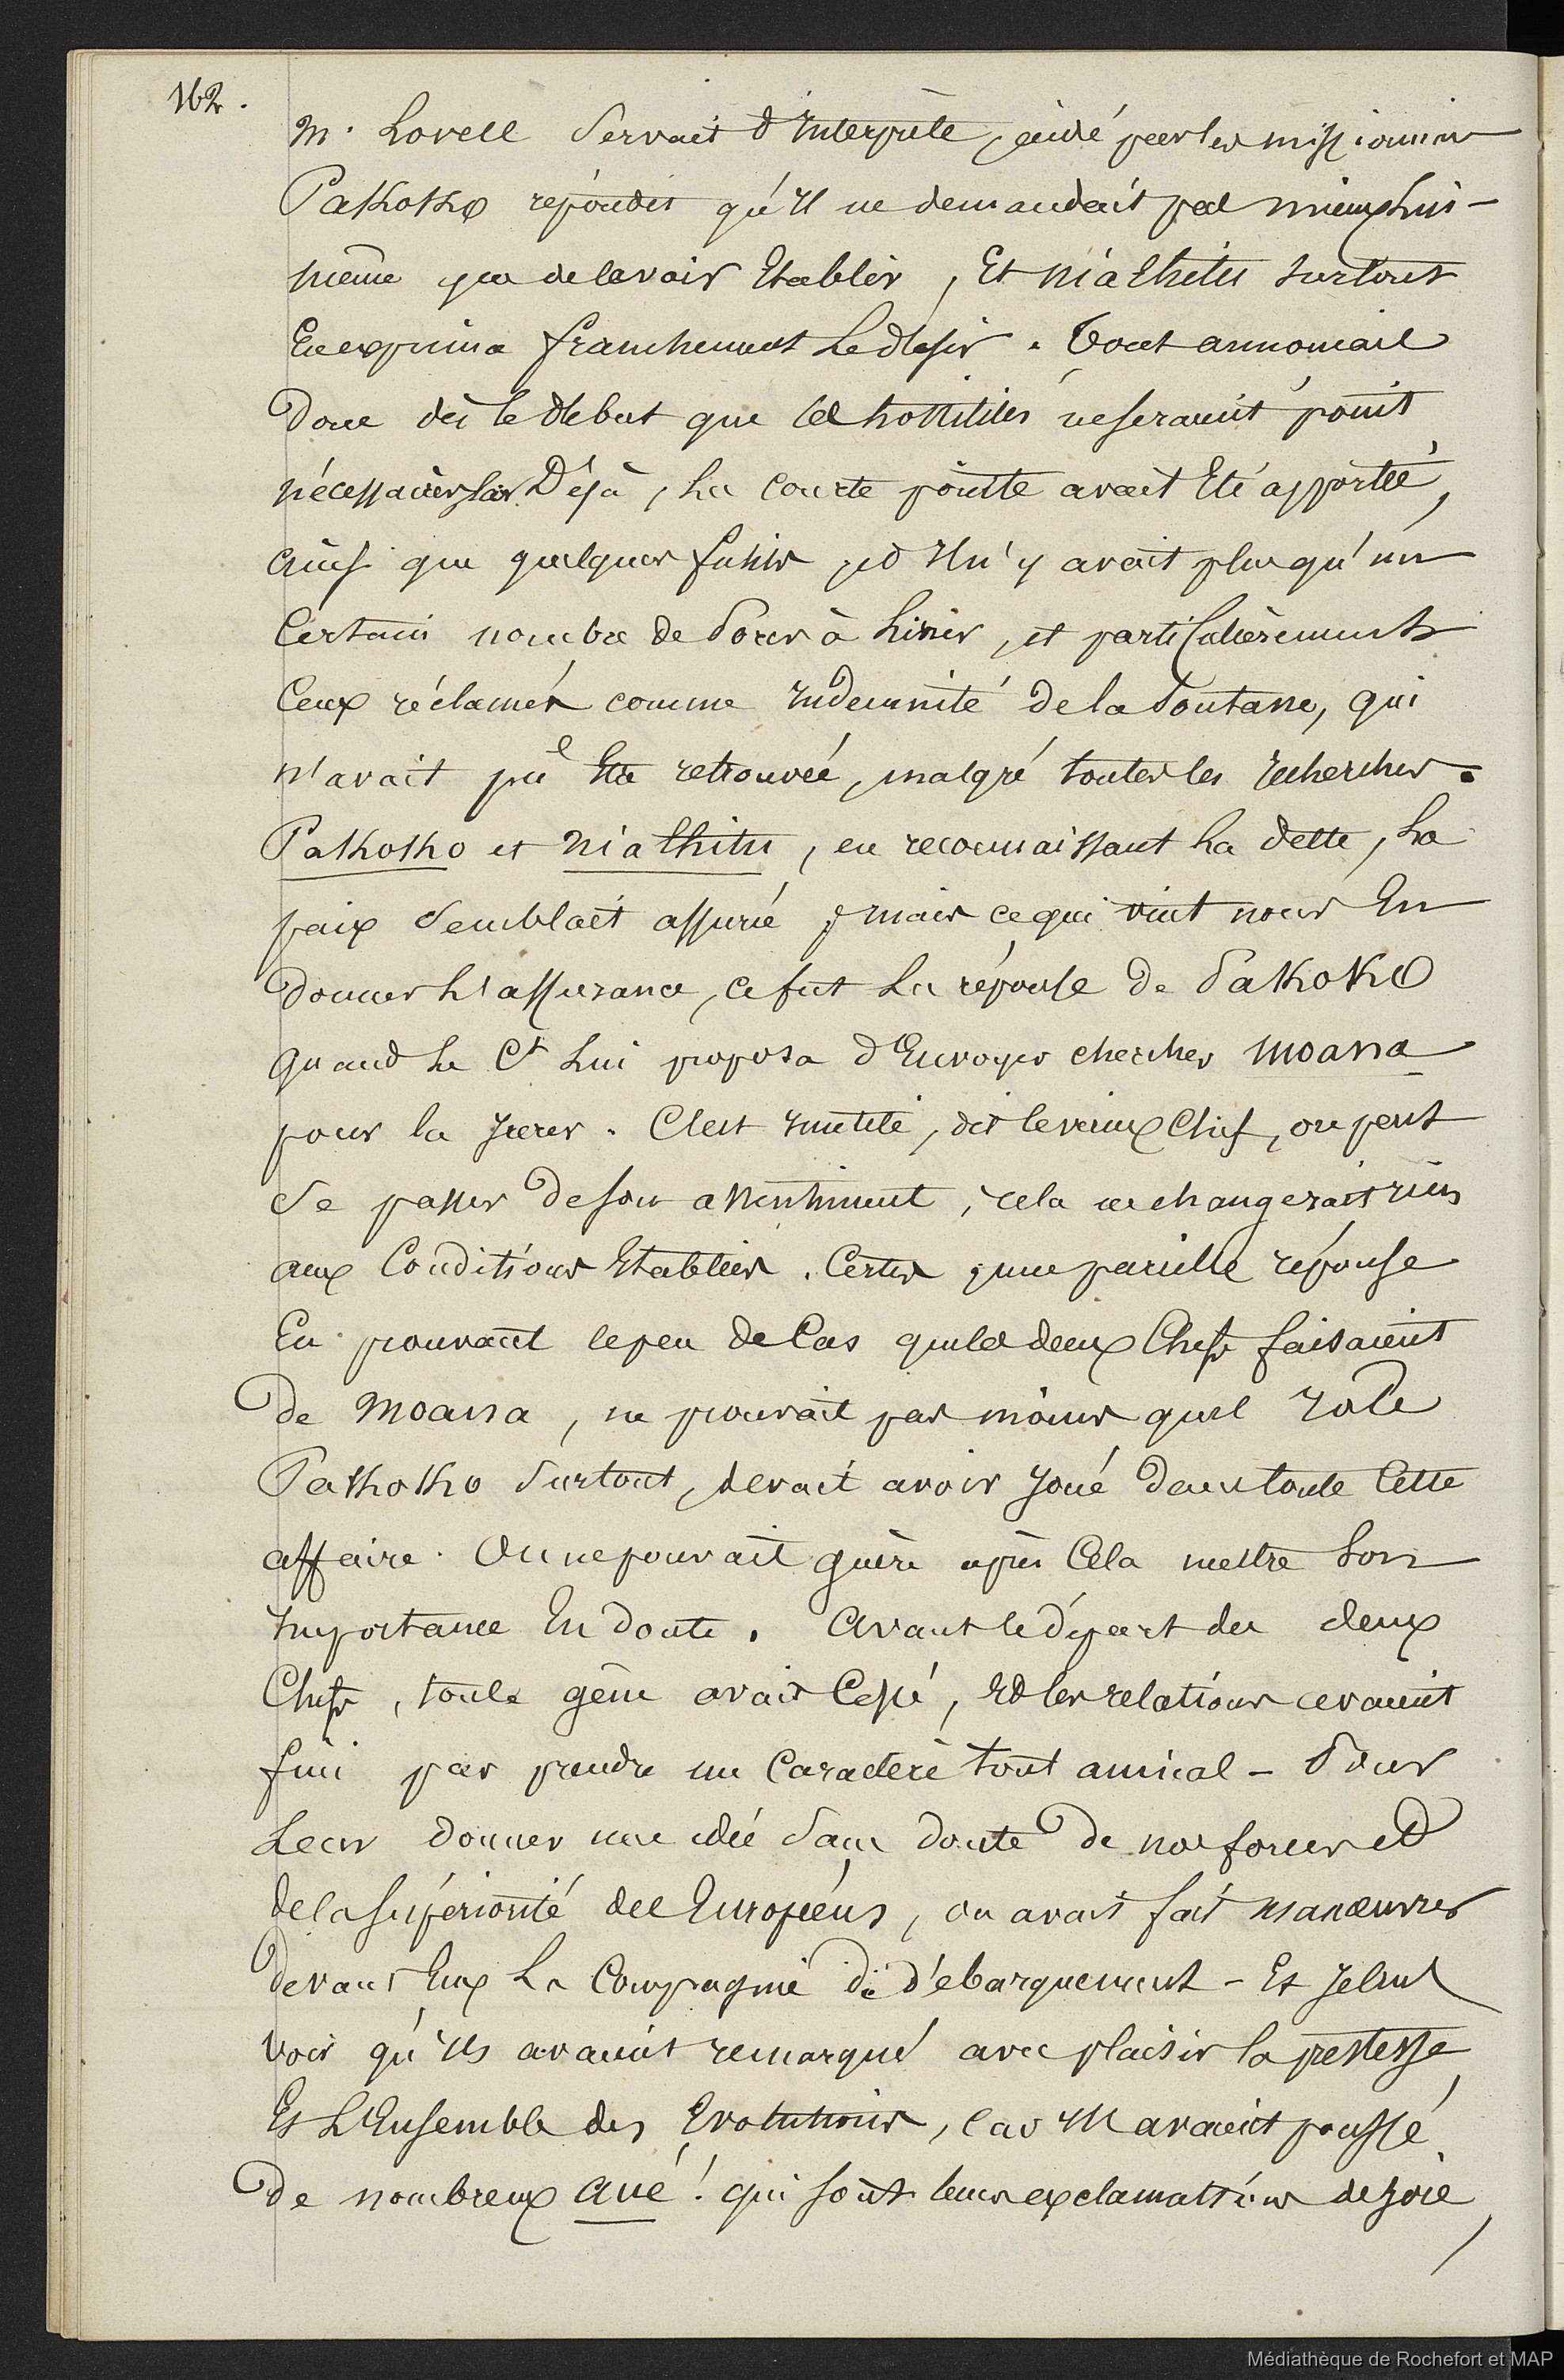 162.
M. Lovell Servait d'Interprète, aidé par les missionnaires
Pakoko répondit qu'Il ne demandait pas mieux Lui-
même que de la voir Etablir, Et Niahitu surtout
En exprima franchement Le desir. Tout annoncait
Donc dès le début que les hostilités ne seraient point
nécessaires. Déjà, La Courte pointe avait Eté apportée,
ainsi que quelques fusils, et Il n'y avait plus qu'un
Certain nombre de Porcs à Livrer, et particulièrement
Ceux réclamés comme Indemnité de la Soutane, qui
n'avait pu Etre retrouvée, malgré toutes les recherches.
Pakoko et Niahitu, en reconnaissant La dette, La
paix Semblait assurée, mais ce qui vint nous En
Donner L'assurance, ce fut La réponse de Pakoko
quand Le Ct Lui proposa d'Envoyer chercher Moana
pour la Jurer. C'est Inutile, dit le vieux Chef, on peut
Se passer de son assentiment, cela ne changerait rien
aux Conditions Etablies. Certes, une pareille réponse
En prouvant le peu de Cas que les deux Chefs faisaient
de Moana, ne prouvait pas moins quel role
Pakoko Surtout, devait avoir Joué dans toute Cette
affaire. On ne pouvait guère après Cela mettre Son
Importance En doute. Avant le départ des deux
Chefs, toute gêne avait Cessé, Et les relations avaient
fini par prendre un Caractere tout amical - Pour
Leur donner une idée Sans doute de nos forces et
de la supériorité des Européens, on avait fait manœuvrer
devant Eux La Compagnie de débarquement - Et Je crus
voir qu'Ils avaient remarqué avec plaisir la prestesse
Et L'Ensemble des Evolutions, Car Ils avaient poussé
De nombreux Aué! qui sont leurs exclamations de Joie,
Médiathèque de Rochefort et MAP